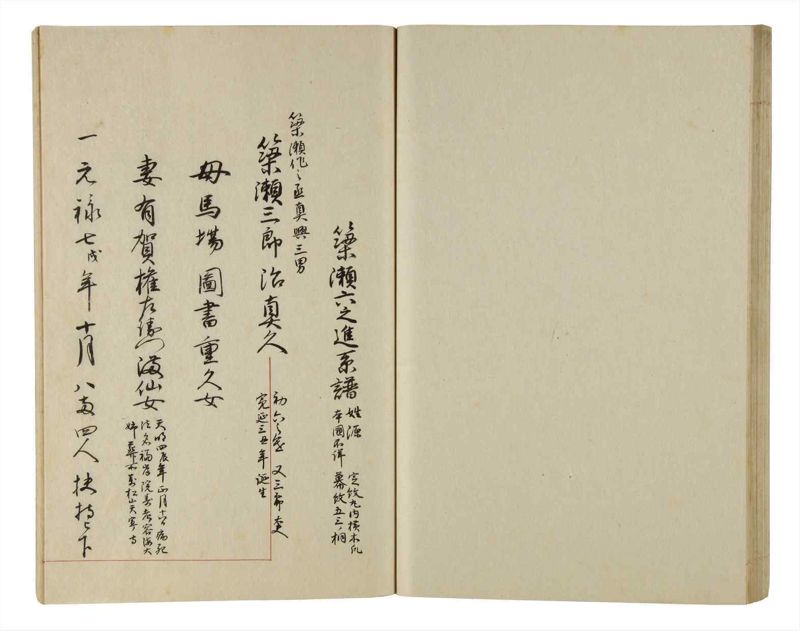 簗瀬六之進系譜
姓源
本國不詳
定紋丸内横木瓜
幕紋五三ノ桐
簗瀬作之丞真興三男
簗瀬三郎治真久
初六之進 又三郎
寛延三丑年誕生
母馬場圖書重久女
妻有賀権左衛門満仙女
天明四辰年正月十六日病死
法名福岸院壽老容海大
姉葬不動松山天寧寺
一元禄七戌年十月八両四人扶持被下